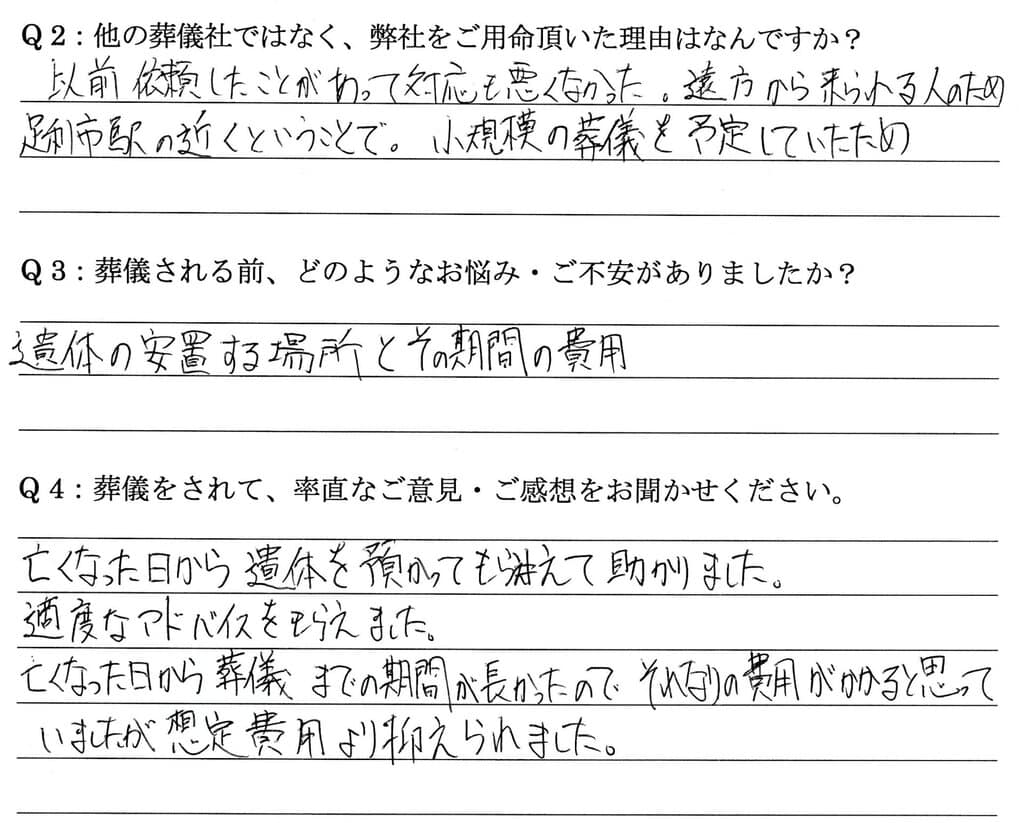 Q2：他の葬儀社ではなく、弊社をご用命頂いた理由はなんですか？
以前依頼したことがあって対応も悪くなかった。遠方から来られる人のため
足利市駅の近くということで。小規模の葬儀を予定していたため
Q3：葬儀される前、どのようなお悩み・ご不安がありましたか？
遺体の安置する場所とその期間の費用
Q4：葬儀をされて、率直なご意見・ご感想をお聞かせください。
亡くなった日から遺体を預かってもらえて助かりました。
適度なアドバイスをもらえました。
亡くなった日から葬儀までの期間が長かったのでそれなりの費用がかかると思って
いましたが想定費用より抑えられました。